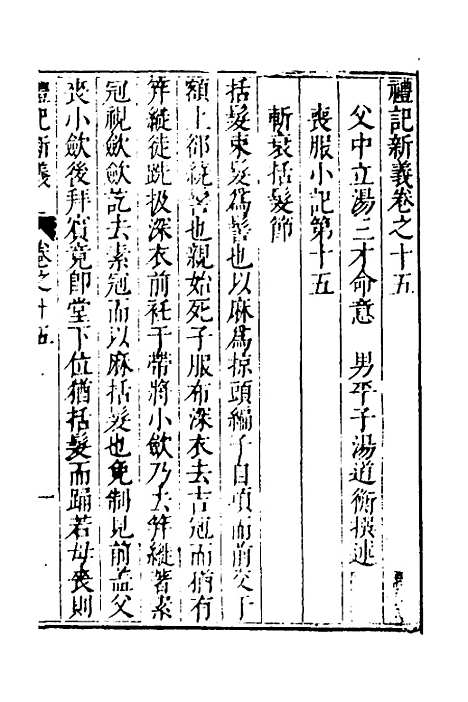 禮記新義卷之十五
父中立湯三才命意　男平子湯道衡撰述
喪服小記第十五
斬衰括髮節
括髮束髮爲髻也以麻爲掠頭編子自項而前交于
額上卻繞髻也親始死子服布深衣去吉冠而猶有
笄縰徒跣扱深衣前衽于帶將小歛乃去笄縰著素
冠視歛歛訖去素冠而以麻括髮也免制見前蓋父
喪小歛後拜賓竟卽堂下位猶括髮而踊若母喪則
禮記新義
卷之十五
一